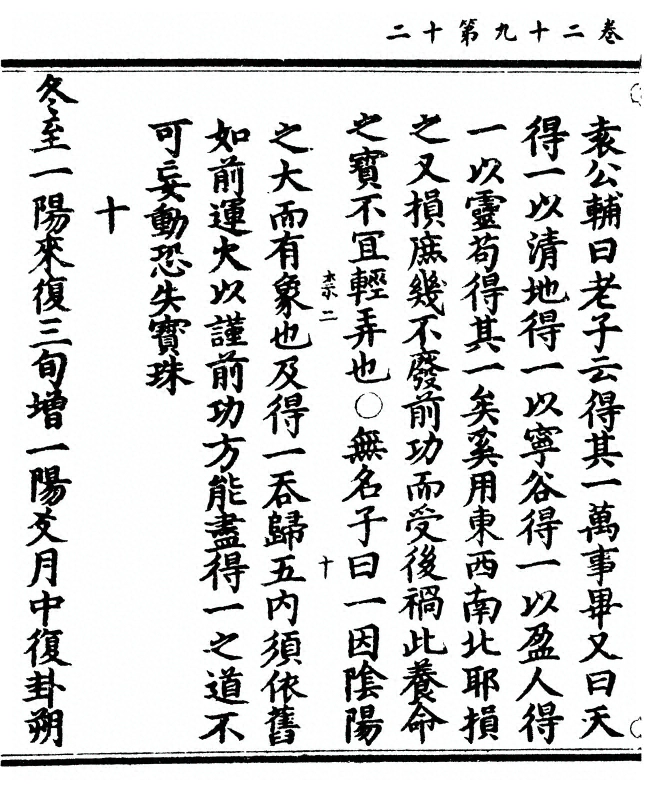 卷二十九第十二
袁公輔曰老子云得其一萬事畢又曰天
得一以清地得一以寧谷得一以盈人得
一以靈苟得其一矣奚用東西南北耶損
之又損庶幾不廢前功而受後禍此養命
之寶不冝輕弄也○無名子曰一因陰陽
柰二　十
之大而有象也及得一吞歸五内須依舊
如前運火以謹前功方能盡得一之道不
可妄動恐失寶珠
十
冬至一陽來復三旬增一陽爻月中復卦朔